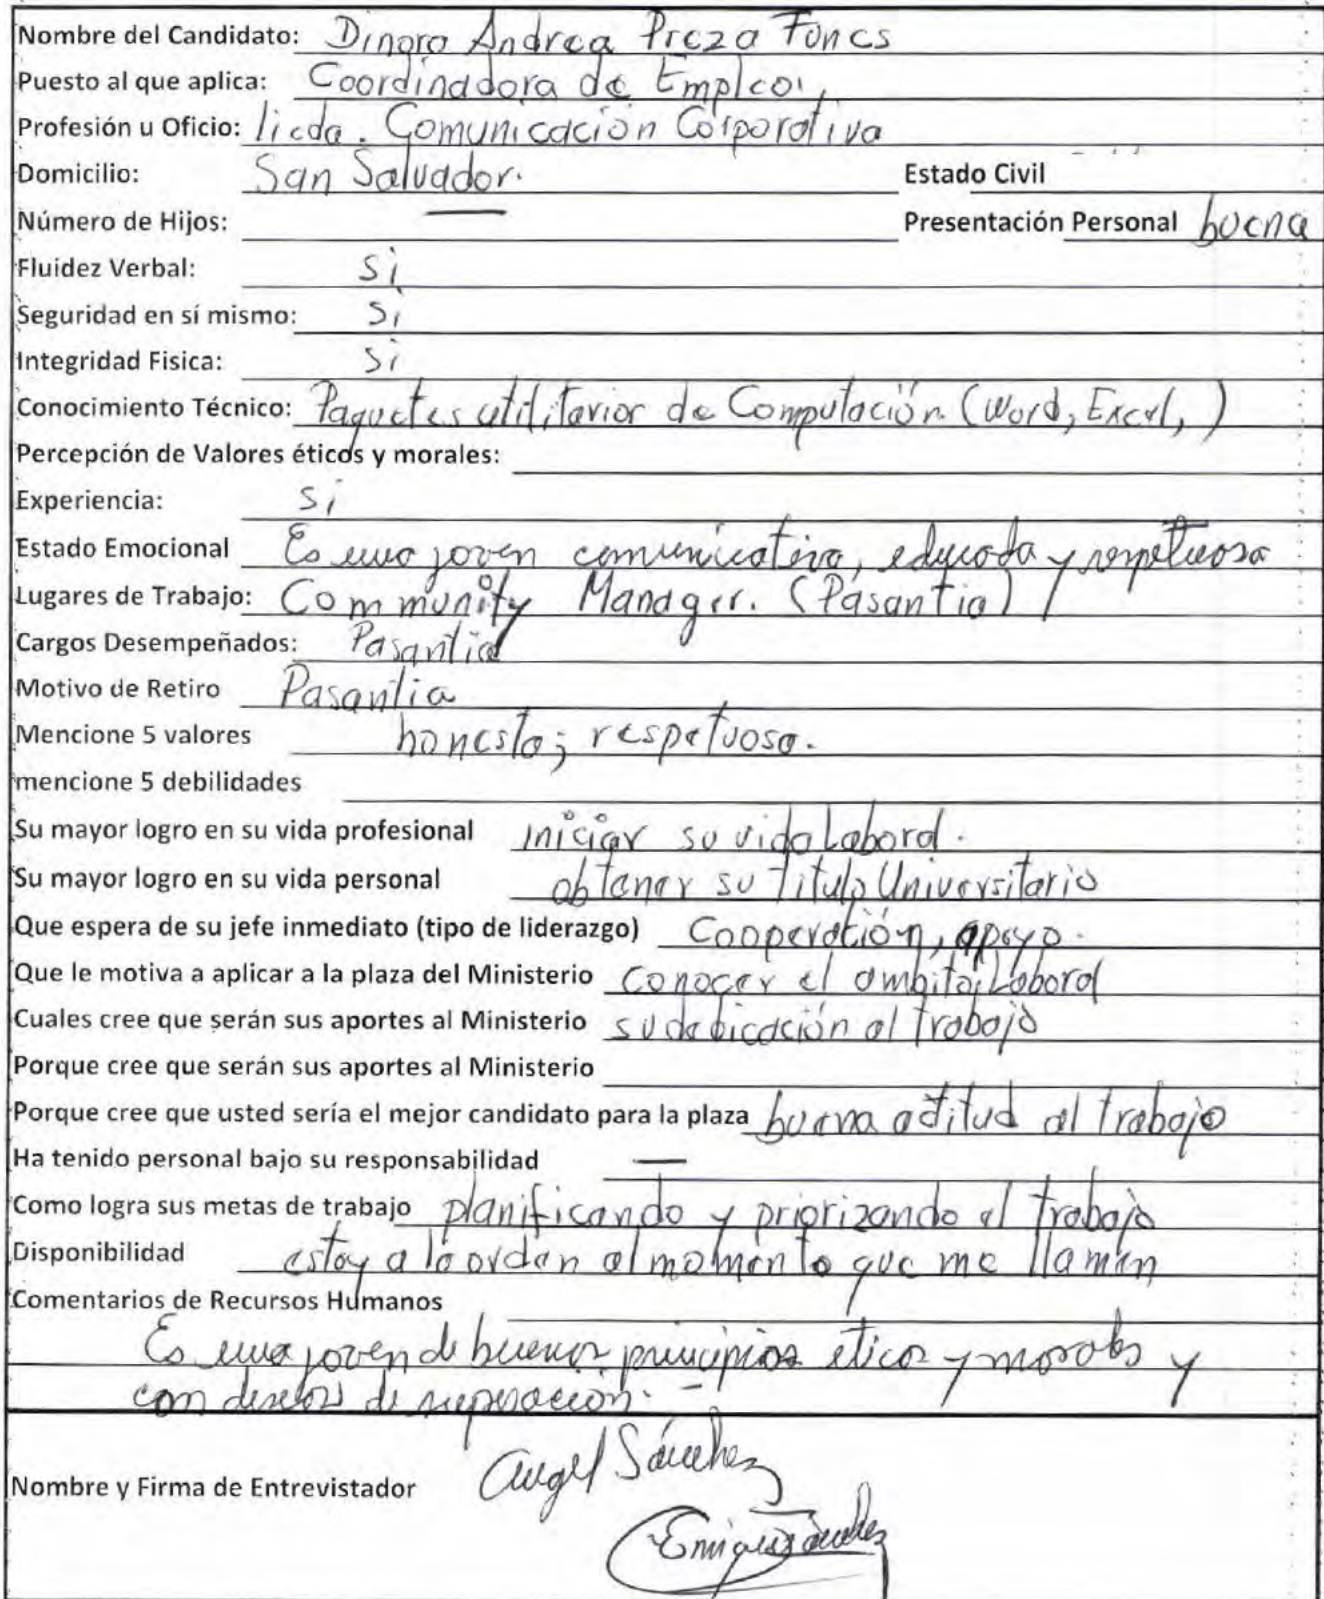 Nombre del Candidato: Dinora Andrea Preza Funes
Puesto al que aplica: Coordinadora de Empleo,
Profesión u Oficio: licda. Comunicación Corporativa
Domicilio: San Salvador. Estado Civil
Número de Hijos: — Presentación Personal buena
Fluidez Verbal: si
Seguridad en sí mismo: si
Integridad Fisica: si
Conocimiento Técnico: Paquetes utilitarior de Computación (Word, Excel, )
Percepción de Valores éticos y morales:
Experiencia: si
Estado Emocional Es una joven comunicativa, educada y respetuosa
Lugares de Trabajo: Community Manager. (Pasantia)
Cargos Desempeñados: Pasantia
Motivo de Retiro Pasantia
Mencione 5 valores honesta; respetuosa.
mencione 5 debilidades
Su mayor logro en su vida profesional iniciar su vida Laboral.
Su mayor logro en su vida personal obtener su Titulo Universitario
Que espera de su jefe inmediato (tipo de liderazgo) Cooperación, apoyo.
Que le motiva a aplicar a la plaza del Ministerio Conocer el ambito Laboral
Cuales cree que serán sus aportes al Ministerio su dedicación al trabajo
Porque cree que serán sus aportes al Ministerio
Porque cree que usted sería el mejor candidato para la plaza buena actitud al trabajo
Ha tenido personal bajo su responsabilidad —
Como logra sus metas de trabajo planificando y priorizando el trabajo
Disponibilidad estoy a la orden al momento que me llamen
Comentarios de Recursos Humanos
Es una joven de buenos principios eticos y morales y
con deseos de superación. -
Nombre y Firma de Entrevistador Angel Sánchez